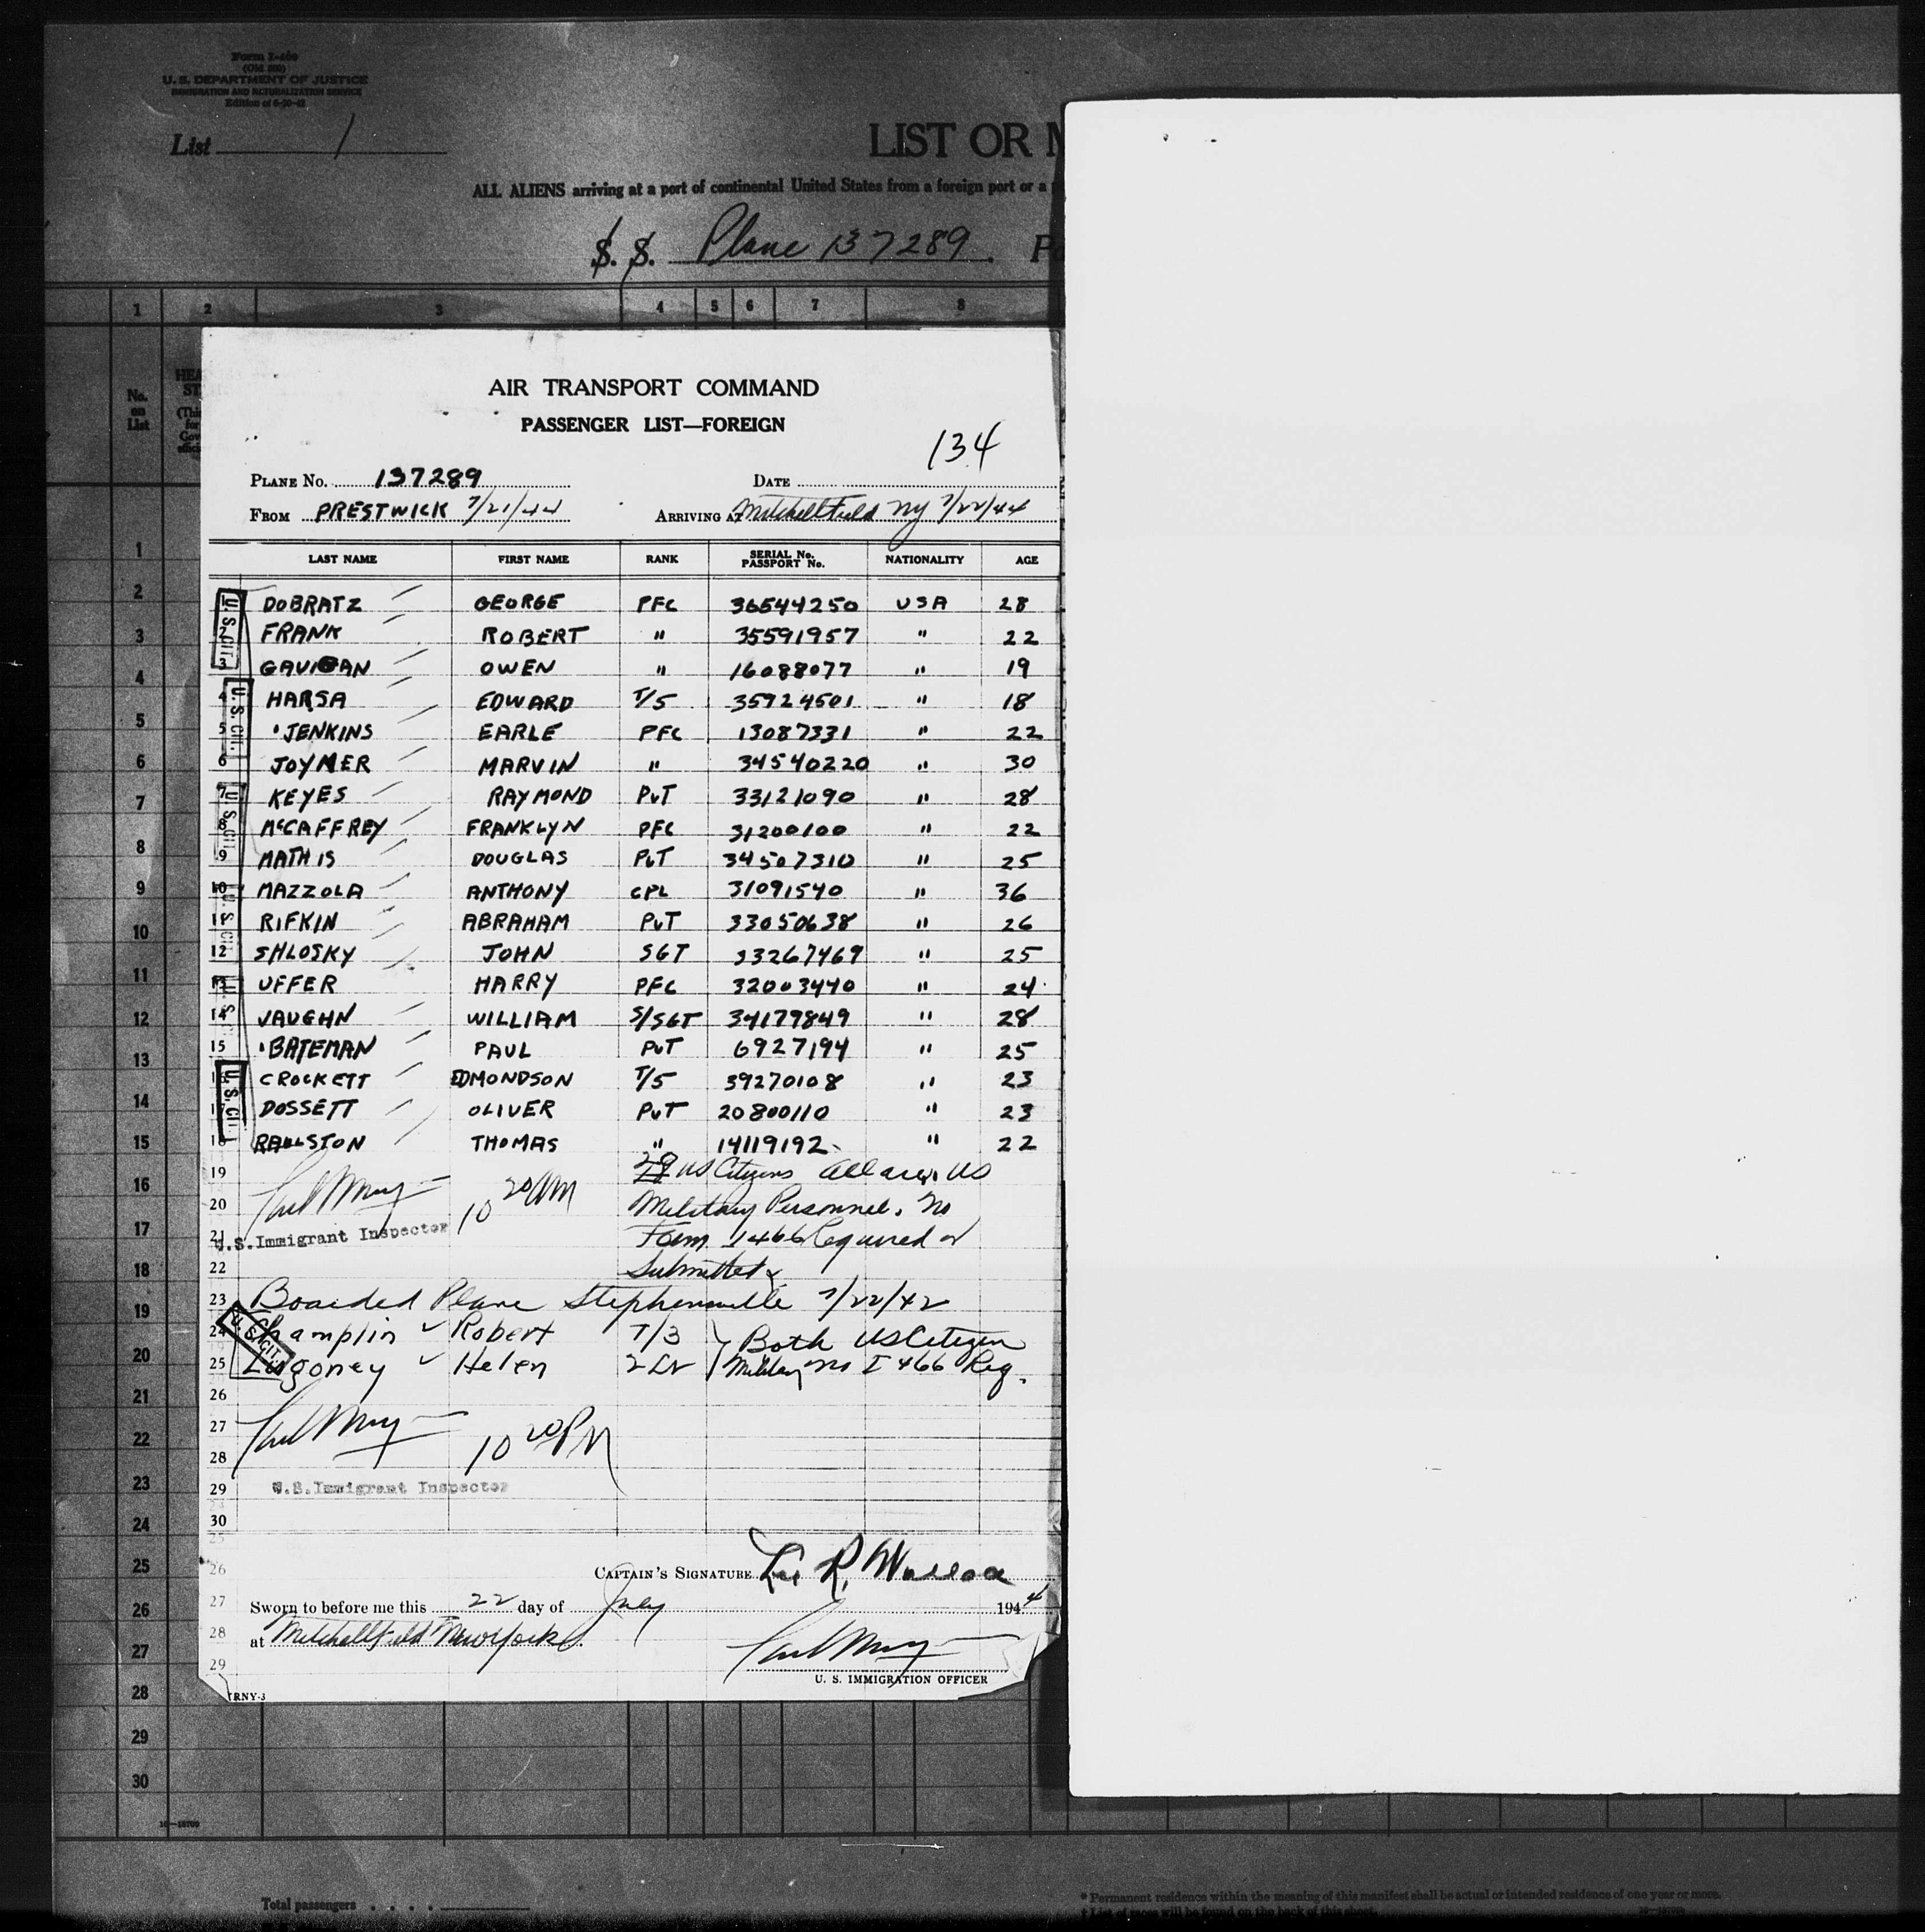 Form I-466
(Old 500)
U. S. DEPARTMENT OF JUSTICE
IMMIGRATION AND NATURALIZATION SERVICE
List 1
LIST OR M
ALL ALIENS arriving at a port of continental United States from a foreign port or a p
S. S. Plane 137289. Po
1 2 3 4 5 6 7 8
No. on List
AIR TRANSPORT COMMAND
PASSENGER LIST—FOREIGN
134
PLANE No. 137289 DATE
FROM PRESTWICK 7/21/44 ARRIVING AT Mitchell Field NY 7/22/44
LAST NAME FIRST NAME RANK SERIAL No. PASSPORT No. NATIONALITY AGE
1 DOBRATZ GEORGE PFC 36544250 USA 28
2 FRANK ROBERT " 35591957 " 22
3 GAVIGAN OWEN " 16088077 " 19
4 HARSA EDWARD T/5 35924501 " 18
5 JENKINS EARLE PFC 13087331 " 22
6 JOYMER MARVIN " 34540220 " 30
7 KEYES RAYMOND PvT 33121090 " 28
8 McCAFFREY FRANKLYN PFC 31200100 " 22
9 MATHIS DOUGLAS PvT 34507310 " 25
10 MAZZOLA ANTHONY CPL 31091540 " 36
11 RIFKIN ABRAHAM PvT 33050638 " 26
12 SHLOSKY JOHN SGT 33267469 " 25
13 UFFER HARRY PFC 32003440 " 24
14 VAUGHN WILLIAM S/SGT 34179849 " 28
15 BATEMAN PAUL PvT 6927194 " 25
16 CROCKETT EDMONDSON T/5 39270108 " 23
17 DOSSETT OLIVER PvT 20800110 " 23
18 RALLSTON THOMAS " 14119192 " 22
U. S. CIT.
19 US Citizens All are US
20 10 20 AM Military Personnel. No
21 U.S. Immigrant Inspector Form I466 Required or
22 Submitted
23 Boarded Plane Stephenville 7/22/42
24 Champlin Robert T/3 Both US Citizen
25 Lugoney Helen 2 Lt Military no I 466 Req.
26
27
28 10 20 PM
29 U.S. Immigrant Inspector
30
CAPTAIN'S SIGNATURE R. Wallace
Sworn to before me this 22 day of July 1944
at Mitchell Field New York
U. S. IMMIGRATION OFFICER
TRNY-3
Total passengers . . . .
* Permanent residence within the meaning of this manifest shall be actual or intended residence of one year or more.
† List of races will be found on the back of this sheet.